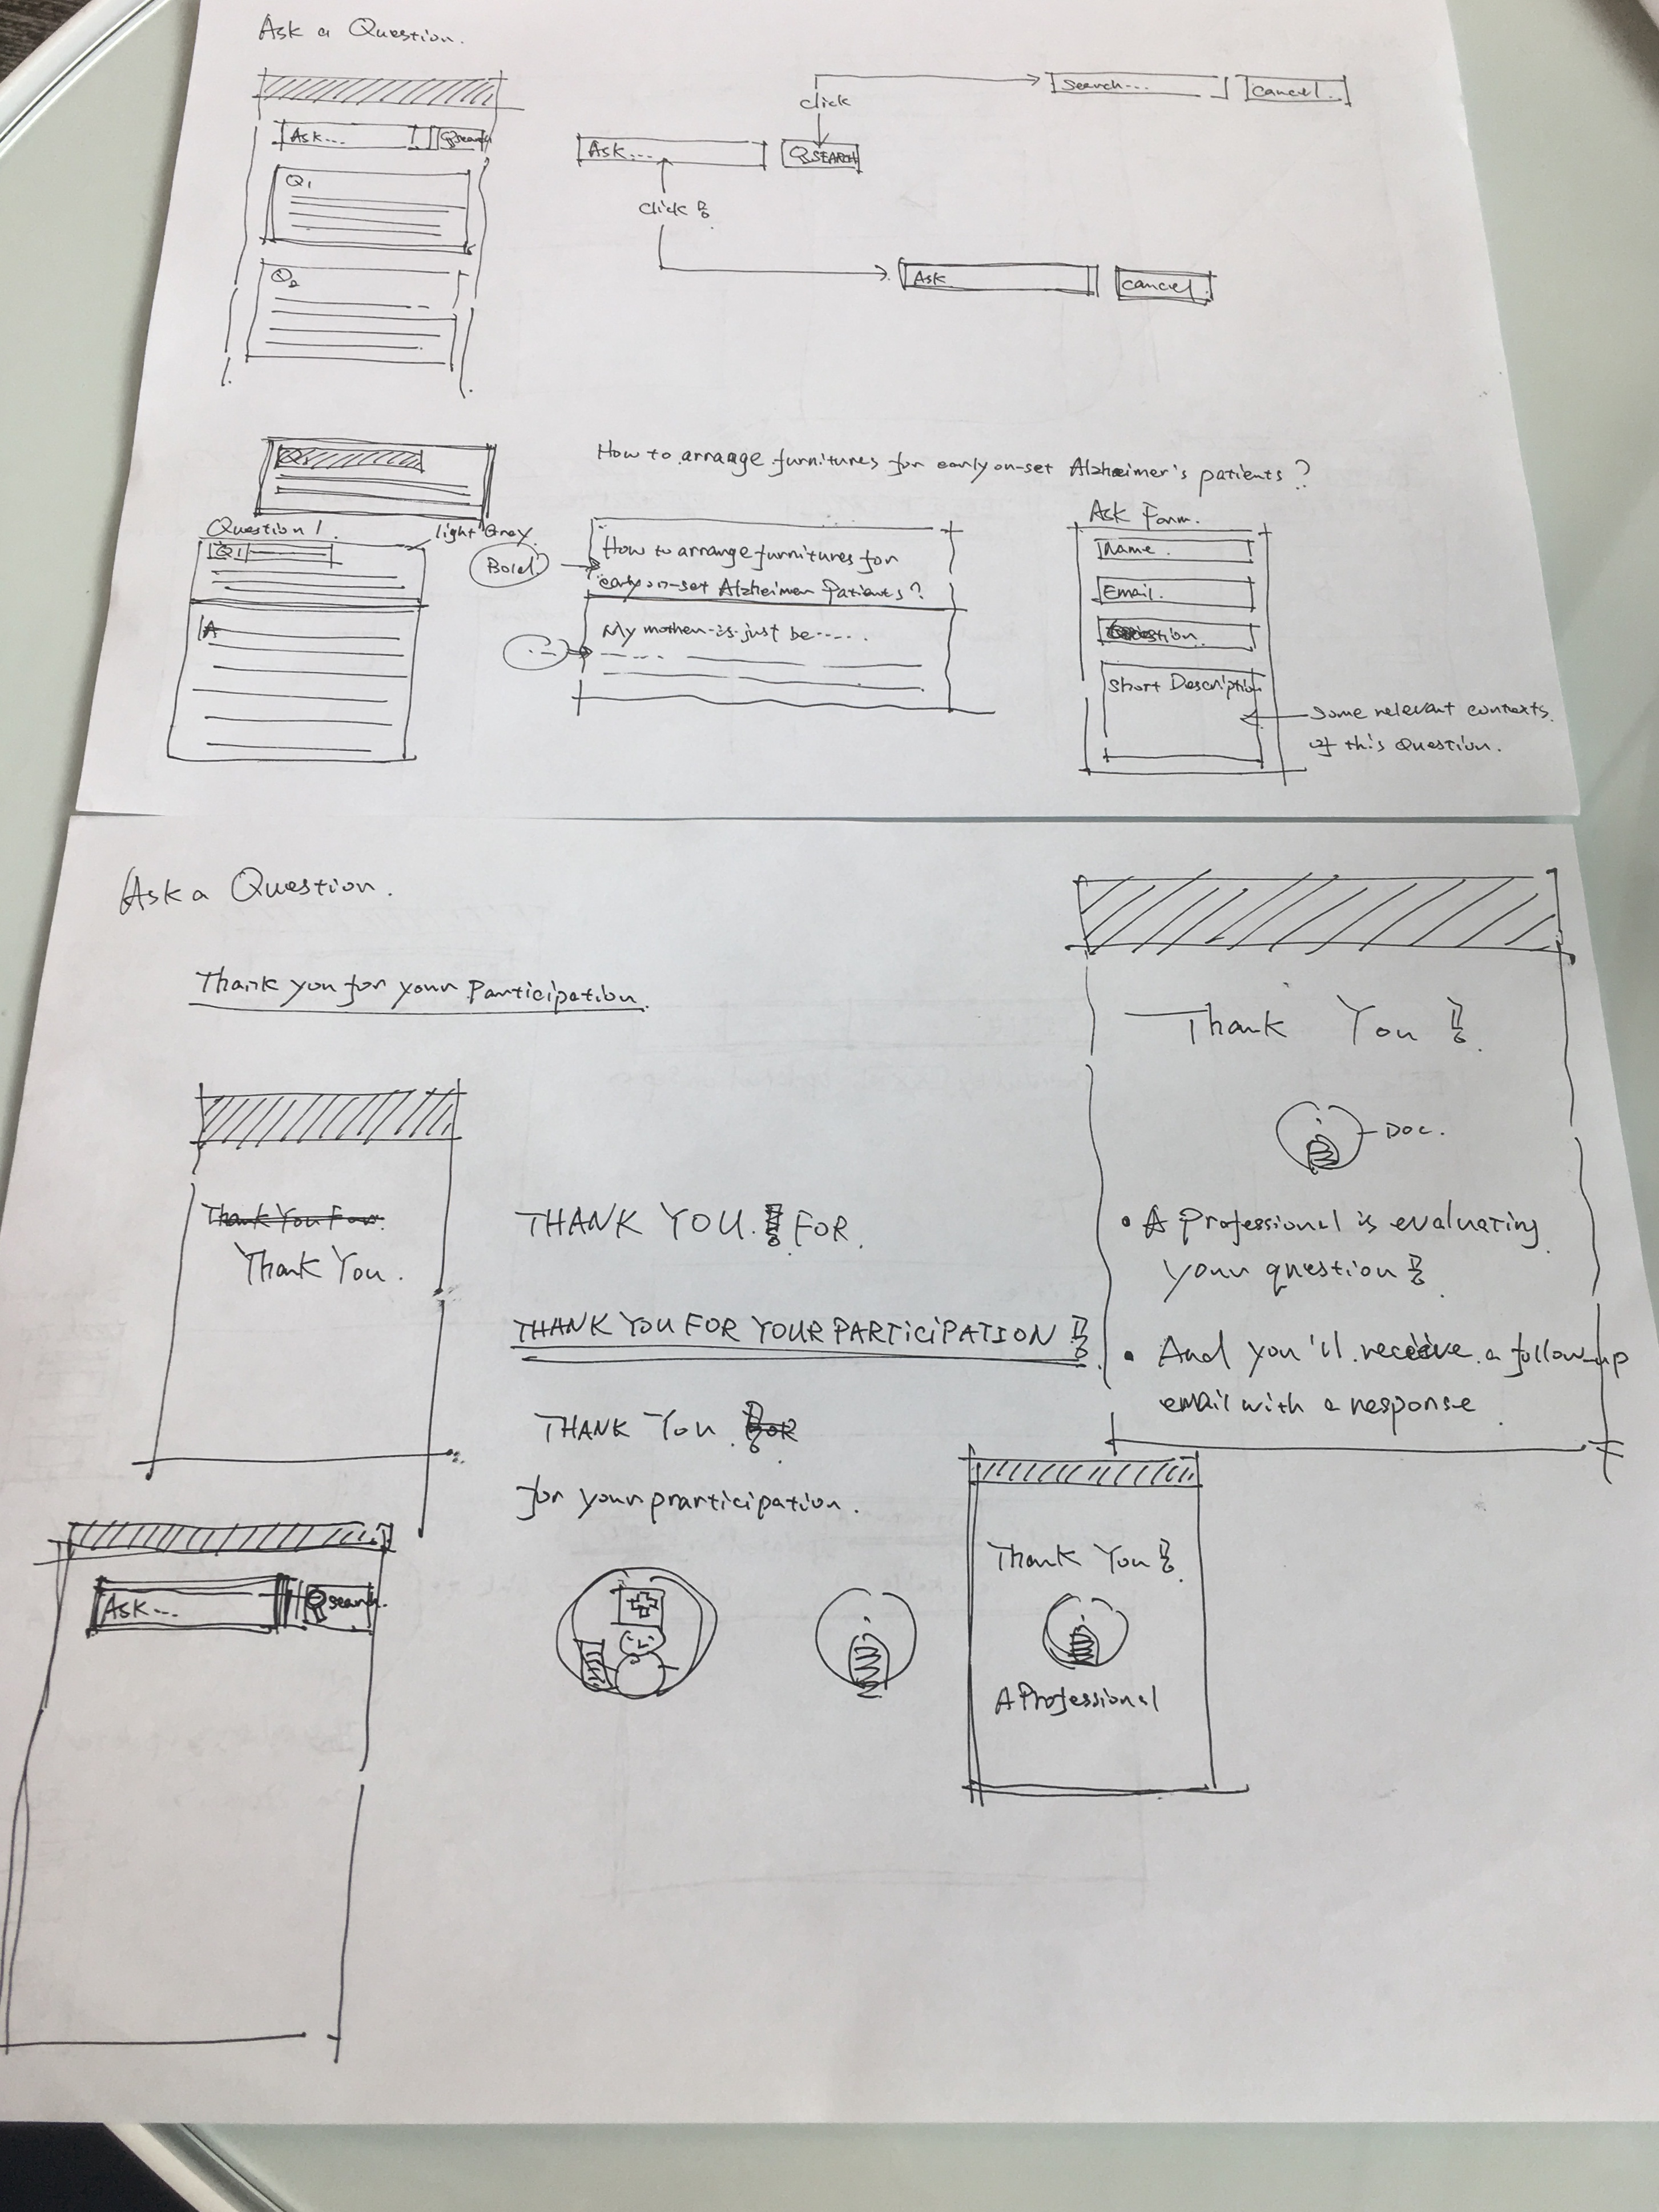 Ask a Question.
Ask...
Search
Q1
Q2
click
Search...
cancel.
Ask...
SEARCH
click
Ask
cancel.
Q
Question 1.
light Grey.
Q1
A
Bold
How to arrange furnitures for early on-set Alzheimer's patients?
How to arrange furnitures for
early on-set Alzheimer Patients?
My mother is just be.....
Ask Form.
Name.
Email.
Question.
Short Description
Some relevant contexts
of this Question.
Ask a Question.
Thank you for your Participation.
Thank You For.
Thank You.
THANK YOU! FOR.
THANK YOU FOR YOUR PARTICIPATION!
THANK YOU! FOR
for your prarticipation.
Thank You!
Doc.
• A Professional is evaluating
your question!
• And you'll receive a follow-up
email with a response
Ask...
search.
Thank You!
A Professional